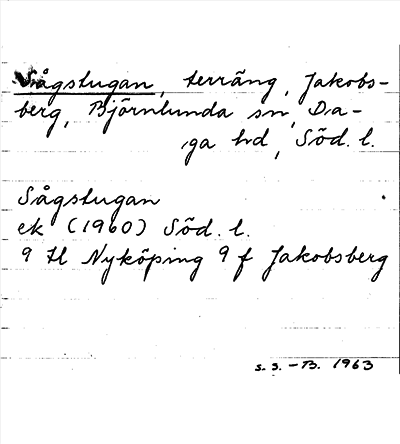 Sågstugan, terräng, Jakobs-
berg, Björnlunda sn, Da-
ga hd, Söd. l.
Sågstugan
ek (1960) Söd. l.
9 H Nyköping 9 f Jakobsberg
s. s. - B. 1963